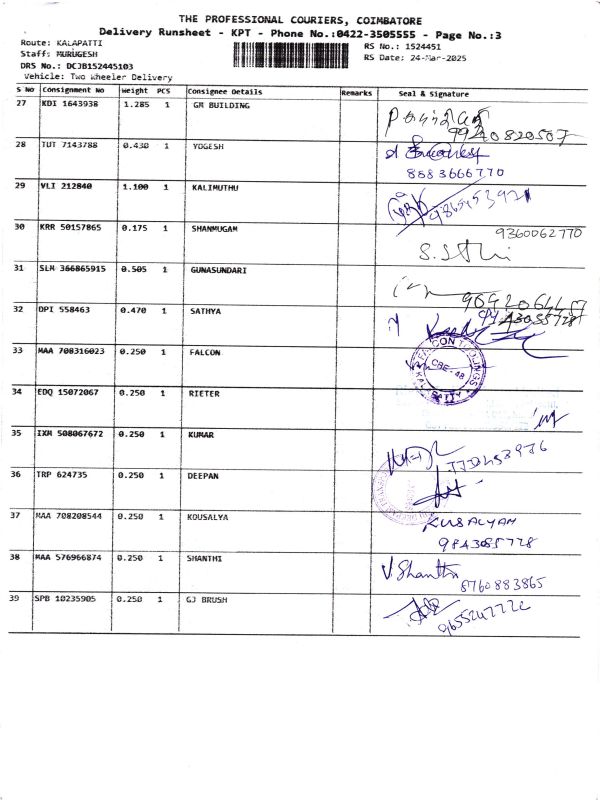 THE PROFESSIONAL COURIERS, COIMBATORE
Delivery Runsheet - KPT - Phone No.:0422-3505555 - Page No.:3
Route: KALAPATTI
RS No.: 1524451
Staff: MURUGESH
RS Date: 24-Mar-2025
DRS No.: DCJB152445103
Vehicle: Two Wheeler Delivery
S No Consignment No Weight PCS Consignee Details Remarks Seal & Signature
27 KDI 1643938 1.285 1 GM BUILDING
28 TUT 7143788 0.430 1 YOGESH
8883666770
29 VLI 212840 1.100 1 KALIMUTHU
30 KRR 50157865 0.175 1 SHANMUGAM 9360062770
31 SLM 366865915 0.505 1 GUNASUNDARI
32 DPI 558463 0.470 1 SATHYA
33 MAA 708316023 0.250 1 FALCON
CBE - 48
34 EDQ 15072067 0.250 1 RIETER
35 IXM 508067672 0.250 1 KUMAR
36 TRP 624735 0.250 1 DEEPAN
37 MAA 708208544 0.250 1 KOUSALYA KUSALYAM
38 MAA 576966874 0.250 1 SHANTHI V. Shanthi
8760883865
39 SPB 10235905 0.250 1 GJ BRUSH